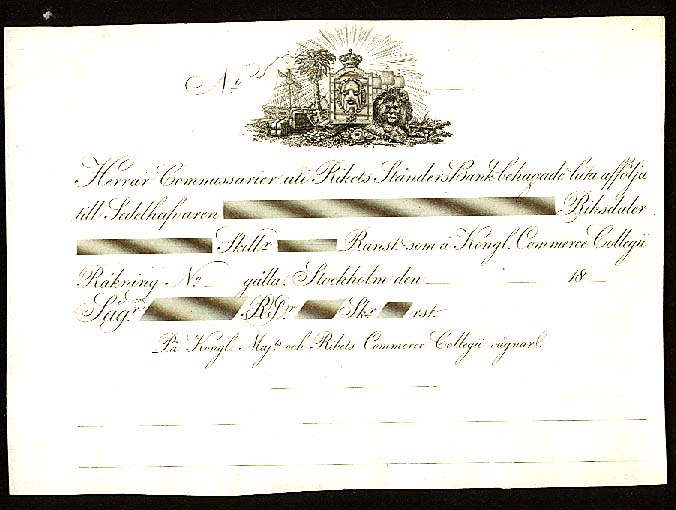 No
Herrar Commissarier uti Rikets Ständers Bank behagade låta afföllja
till Sedelhafvaren Riksdaler
Skill.r Runst. som å Kongl. Commerce Collegii
Räkning No gälla. Stockholm den 18
Säg.r RD.r Sk.r rst.
På Kongl. Maj.ts och Rikets Commerce Collegii vägnar.